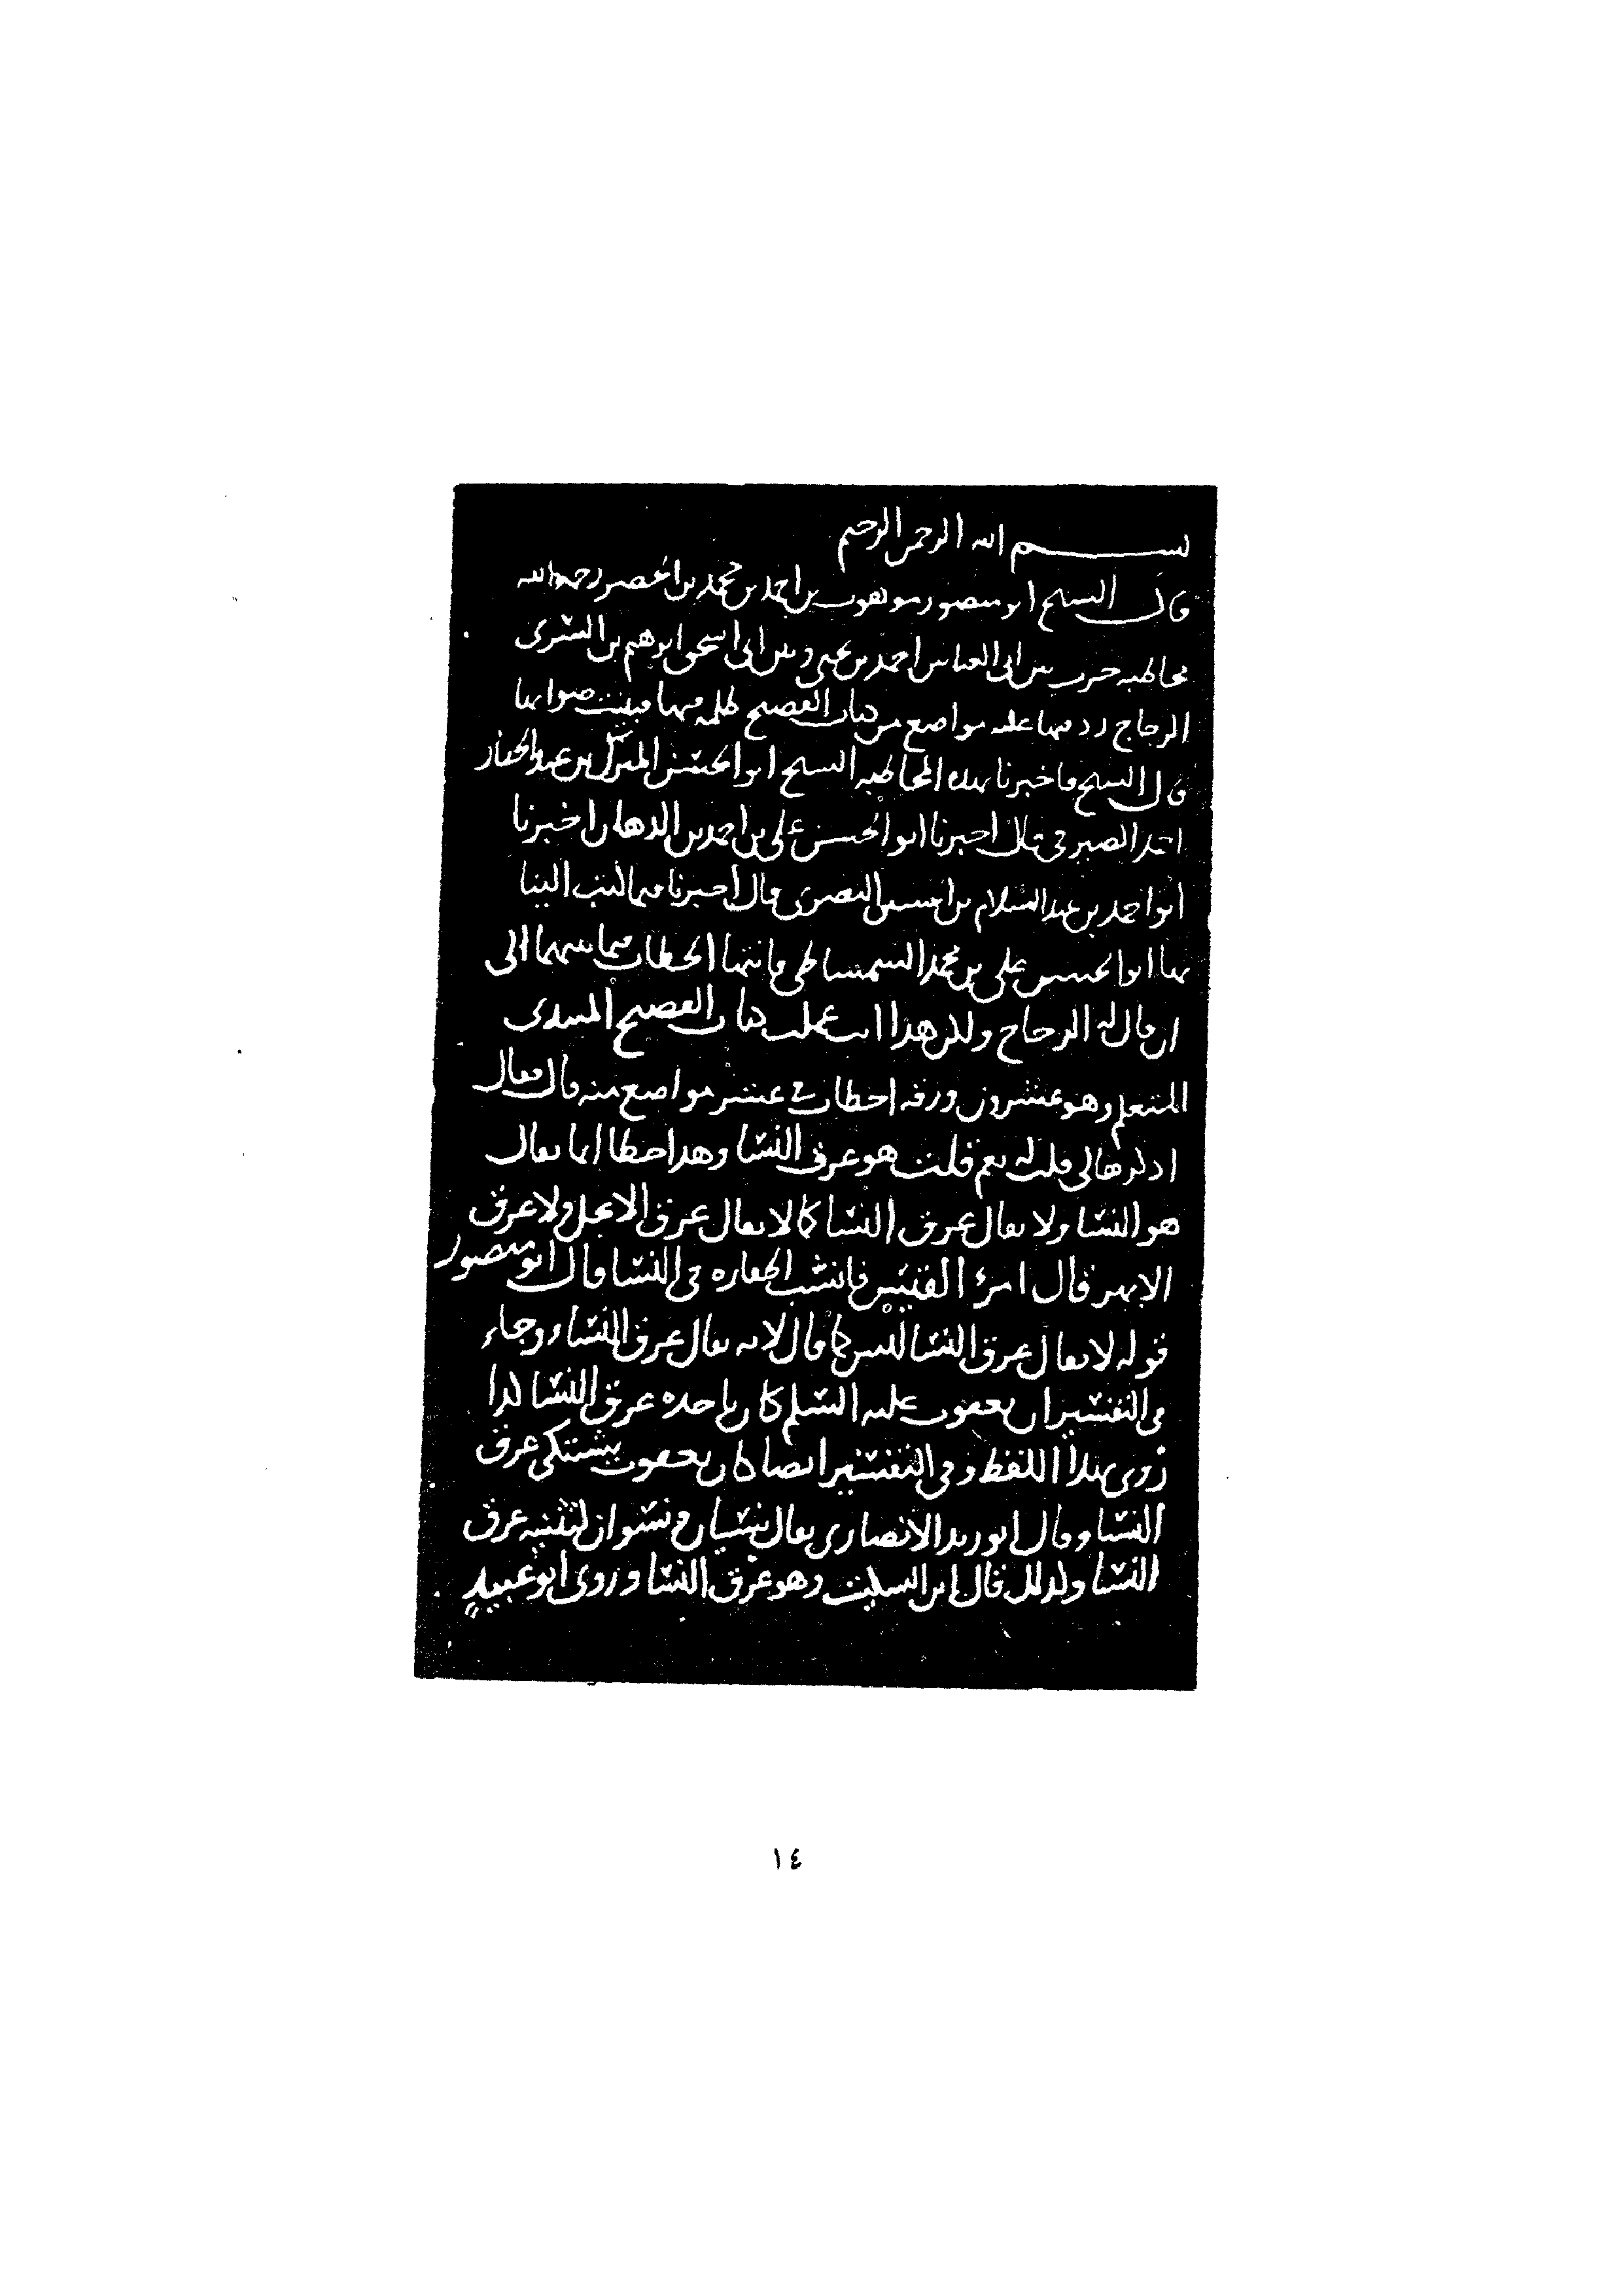 بسم الله الرحمن الرحيم
قال الشيخ ابو منصور موهوب بن احمد بن محمد بن الخضر رحمه الله
مخاطبه جرت بين ابي العباس احمد بن يحيى وبين ابي اسحق ابرهيم بن السرى
الزجاج رد فيها عليه مواضع من كتاب الفصيح ظلمه فيها فبينت صوابها
قال الشيخ فاخبرنا بهذه المخاطبه الشيخ ابو الحسين المبارك بن عبد الجبار
احمد الصيرفي قال اخبرنا ابو الحسن علي بن احمد بن الدهان اخبرنا
ابو احمد بن عبد السلام بن الحسين البصرى قال اخبرنا فيما كتب الينا
بها ابو الحسن علي بن محمد الشمشاطي وانتها الخطاب فيما بينهما الى
ان قال له الزجاج ولكن هذا انت عملت كتاب الفصيح للمبتدى
المتعلم وهو عشرون ورقه اخطات في عشر مواضع منه قال فقال
اذكرها لي قلت له نعم قلت هو عرق النسا وهذا خطا انما يقال
هو النسا ولا يقال عرق النسا كما لا يقال عرق الاكحل ولا عرق
الابهر قال امرئ القيس فانشب اظفاره في النسا قال ابو منصور
قوله لا يقال عرق النسا ليس كما قال لانه يقال عرق النسا وجاء
في التفسير ان يعقوب عليه السلم كان ياخذه عرق النسا كذا
روى بهذا اللفظ وفي التفسير ايضا كان يعقوب يشتكي عرق
النسا وقال ابو زيد الانصاري يقال نسيان ونسوان لتثنيه عرق
النسا وكذلك قال ابن السكيت وهو عرق النسا وروى ابو عبيد
١٤